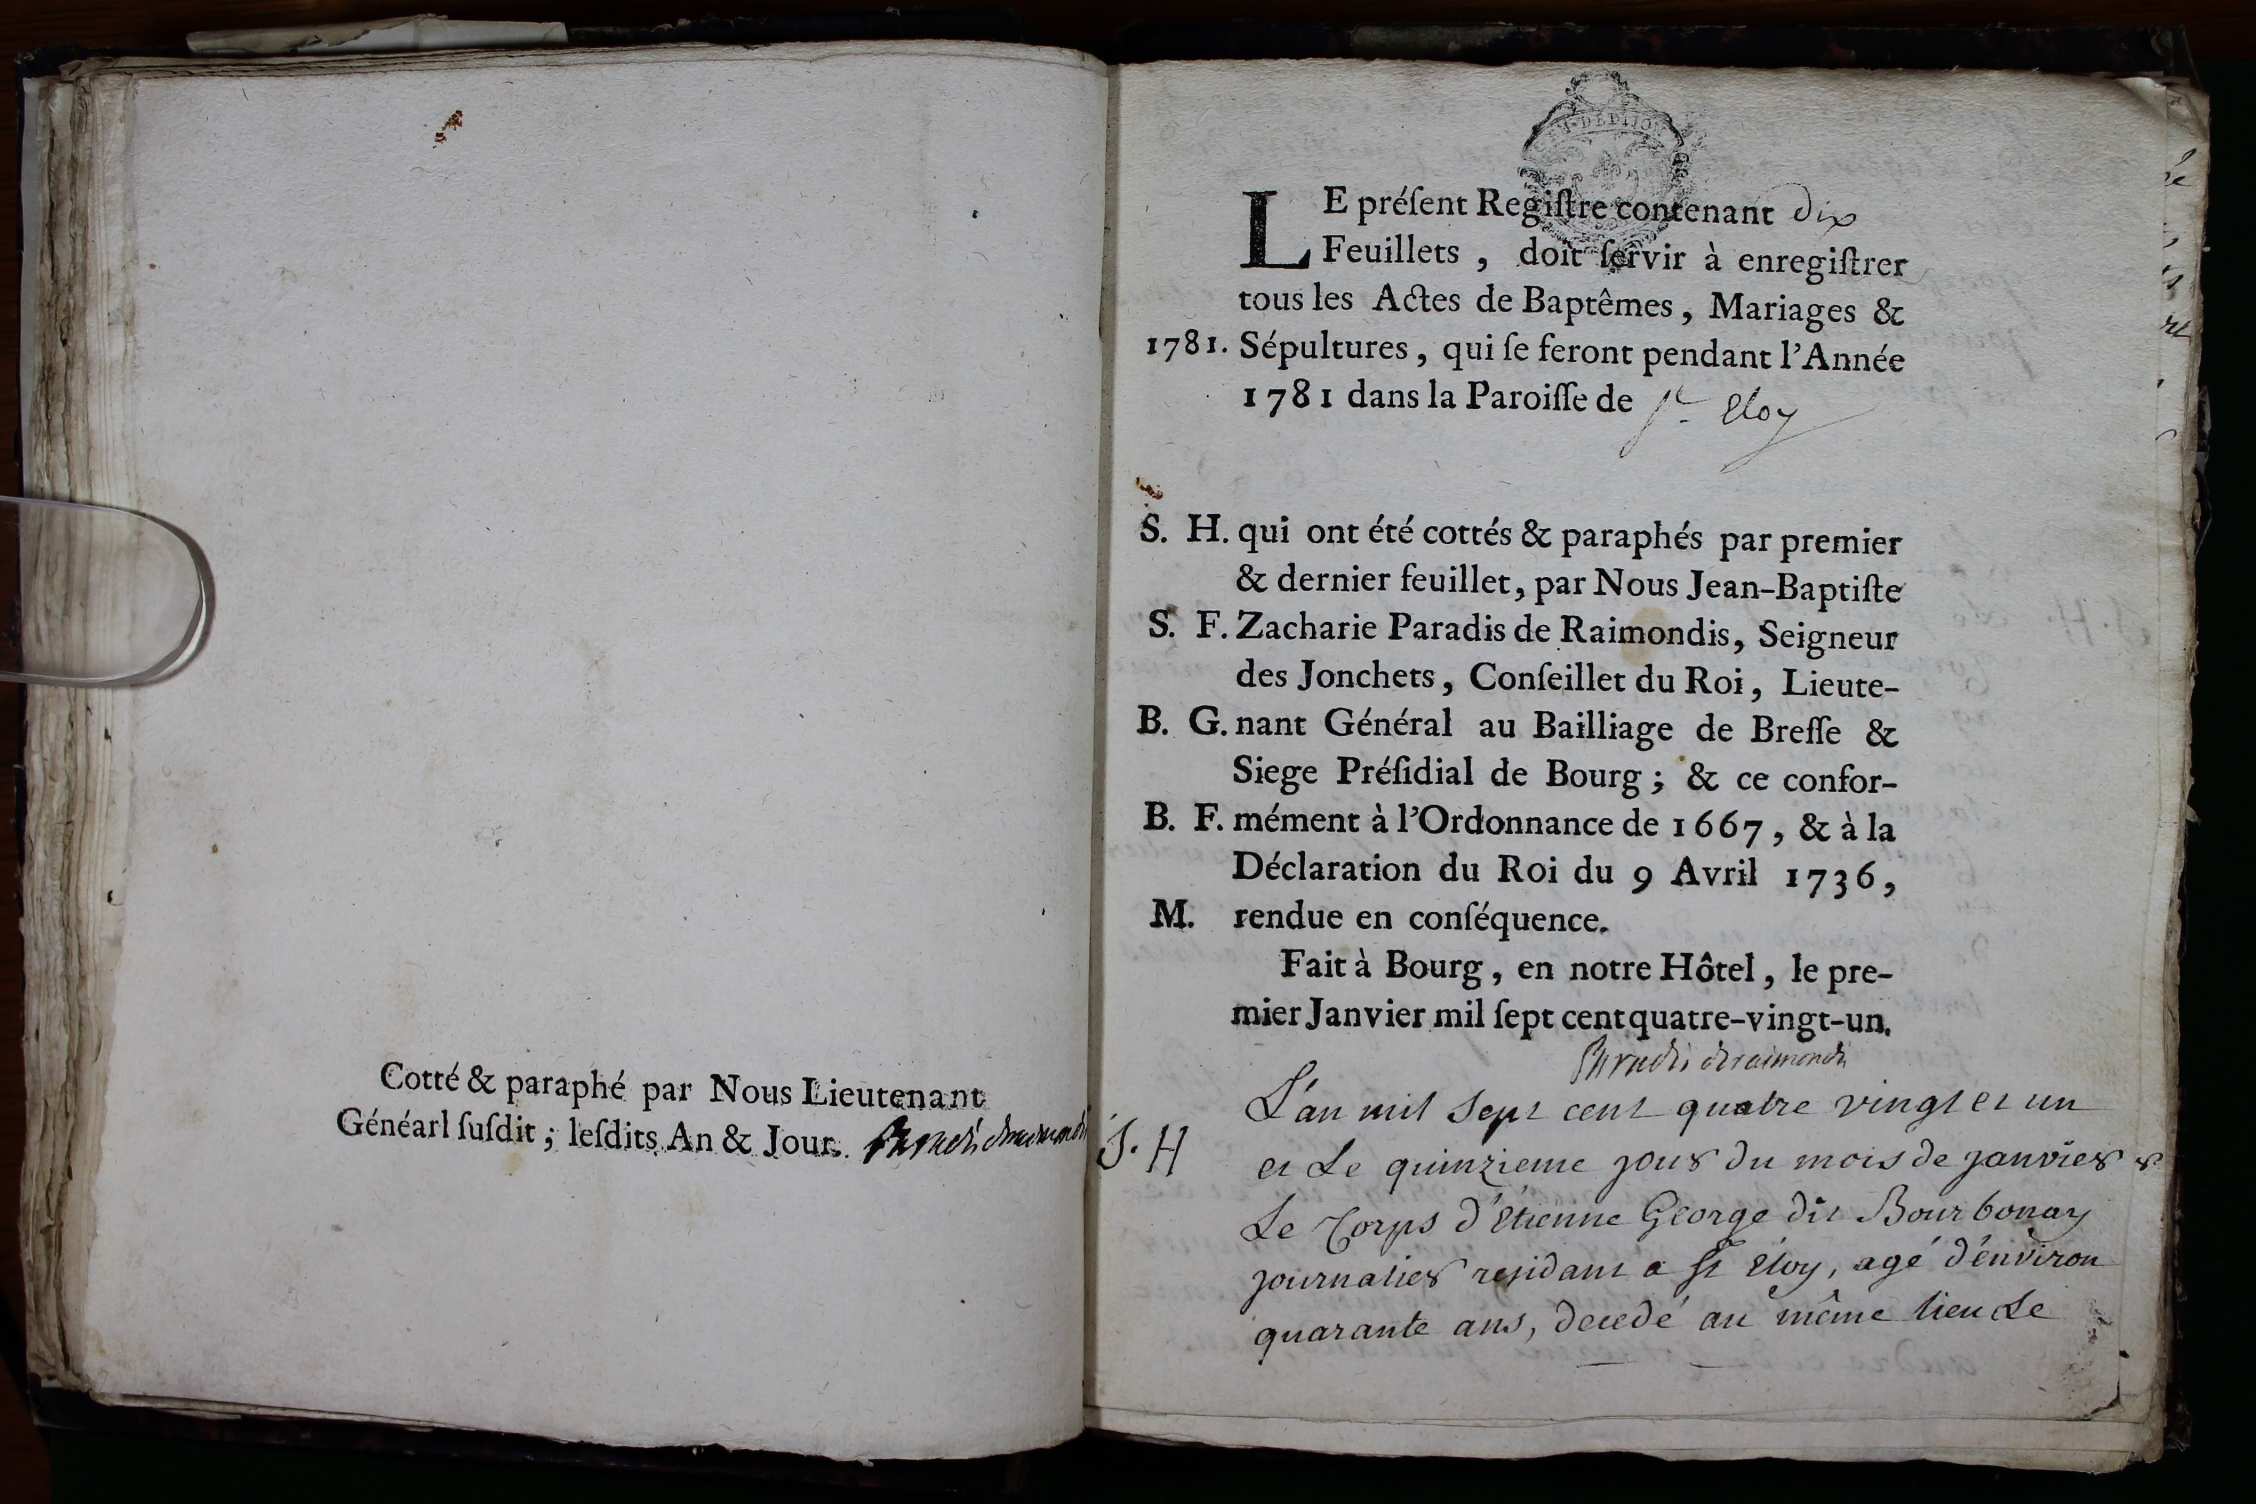 Cotté & paraphé par Nous Lieutenant
Généarl ſuſdit ; leſdits An & Jour.
LE préſent Regiſtre contenant dix
Feuillets , doit ſervir à enregiſtrer
tous les Actes de Baptêmes , Mariages &
1781. Sépultures , qui ſe feront pendant l'Année
1781 dans la Paroiſſe de St Eloy
S. H. qui ont été cottés & paraphés par premier
& dernier feuillet, par Nous Jean-Baptiſte
S. F. Zacharie Paradis de Raimondis, Seigneur
des Jonchets , Conſeillet du Roi , Lieute-
B. G. nant Général au Bailliage de Breſſe &
Siege Préſidial de Bourg ; & ce confor-
B. F. mément à l'Ordonnance de 1667 , & à la
Déclaration du Roi du 9 Avril 1736 ,
M. rendue en conſéquence.
Fait à Bourg , en notre Hôtel , le pre-
mier Janvier mil ſept cent quatre-vingt-un.
Paradis deraimondis
L'an mil sept cent quatre vingt et un
S. H et Le quinzieme jour du mois de janvier
Le Corps d'étienne George dit Bourbonay
journalier residant a st Eloy, agé d'énviron
quarante ans, decedé au même lieu Le